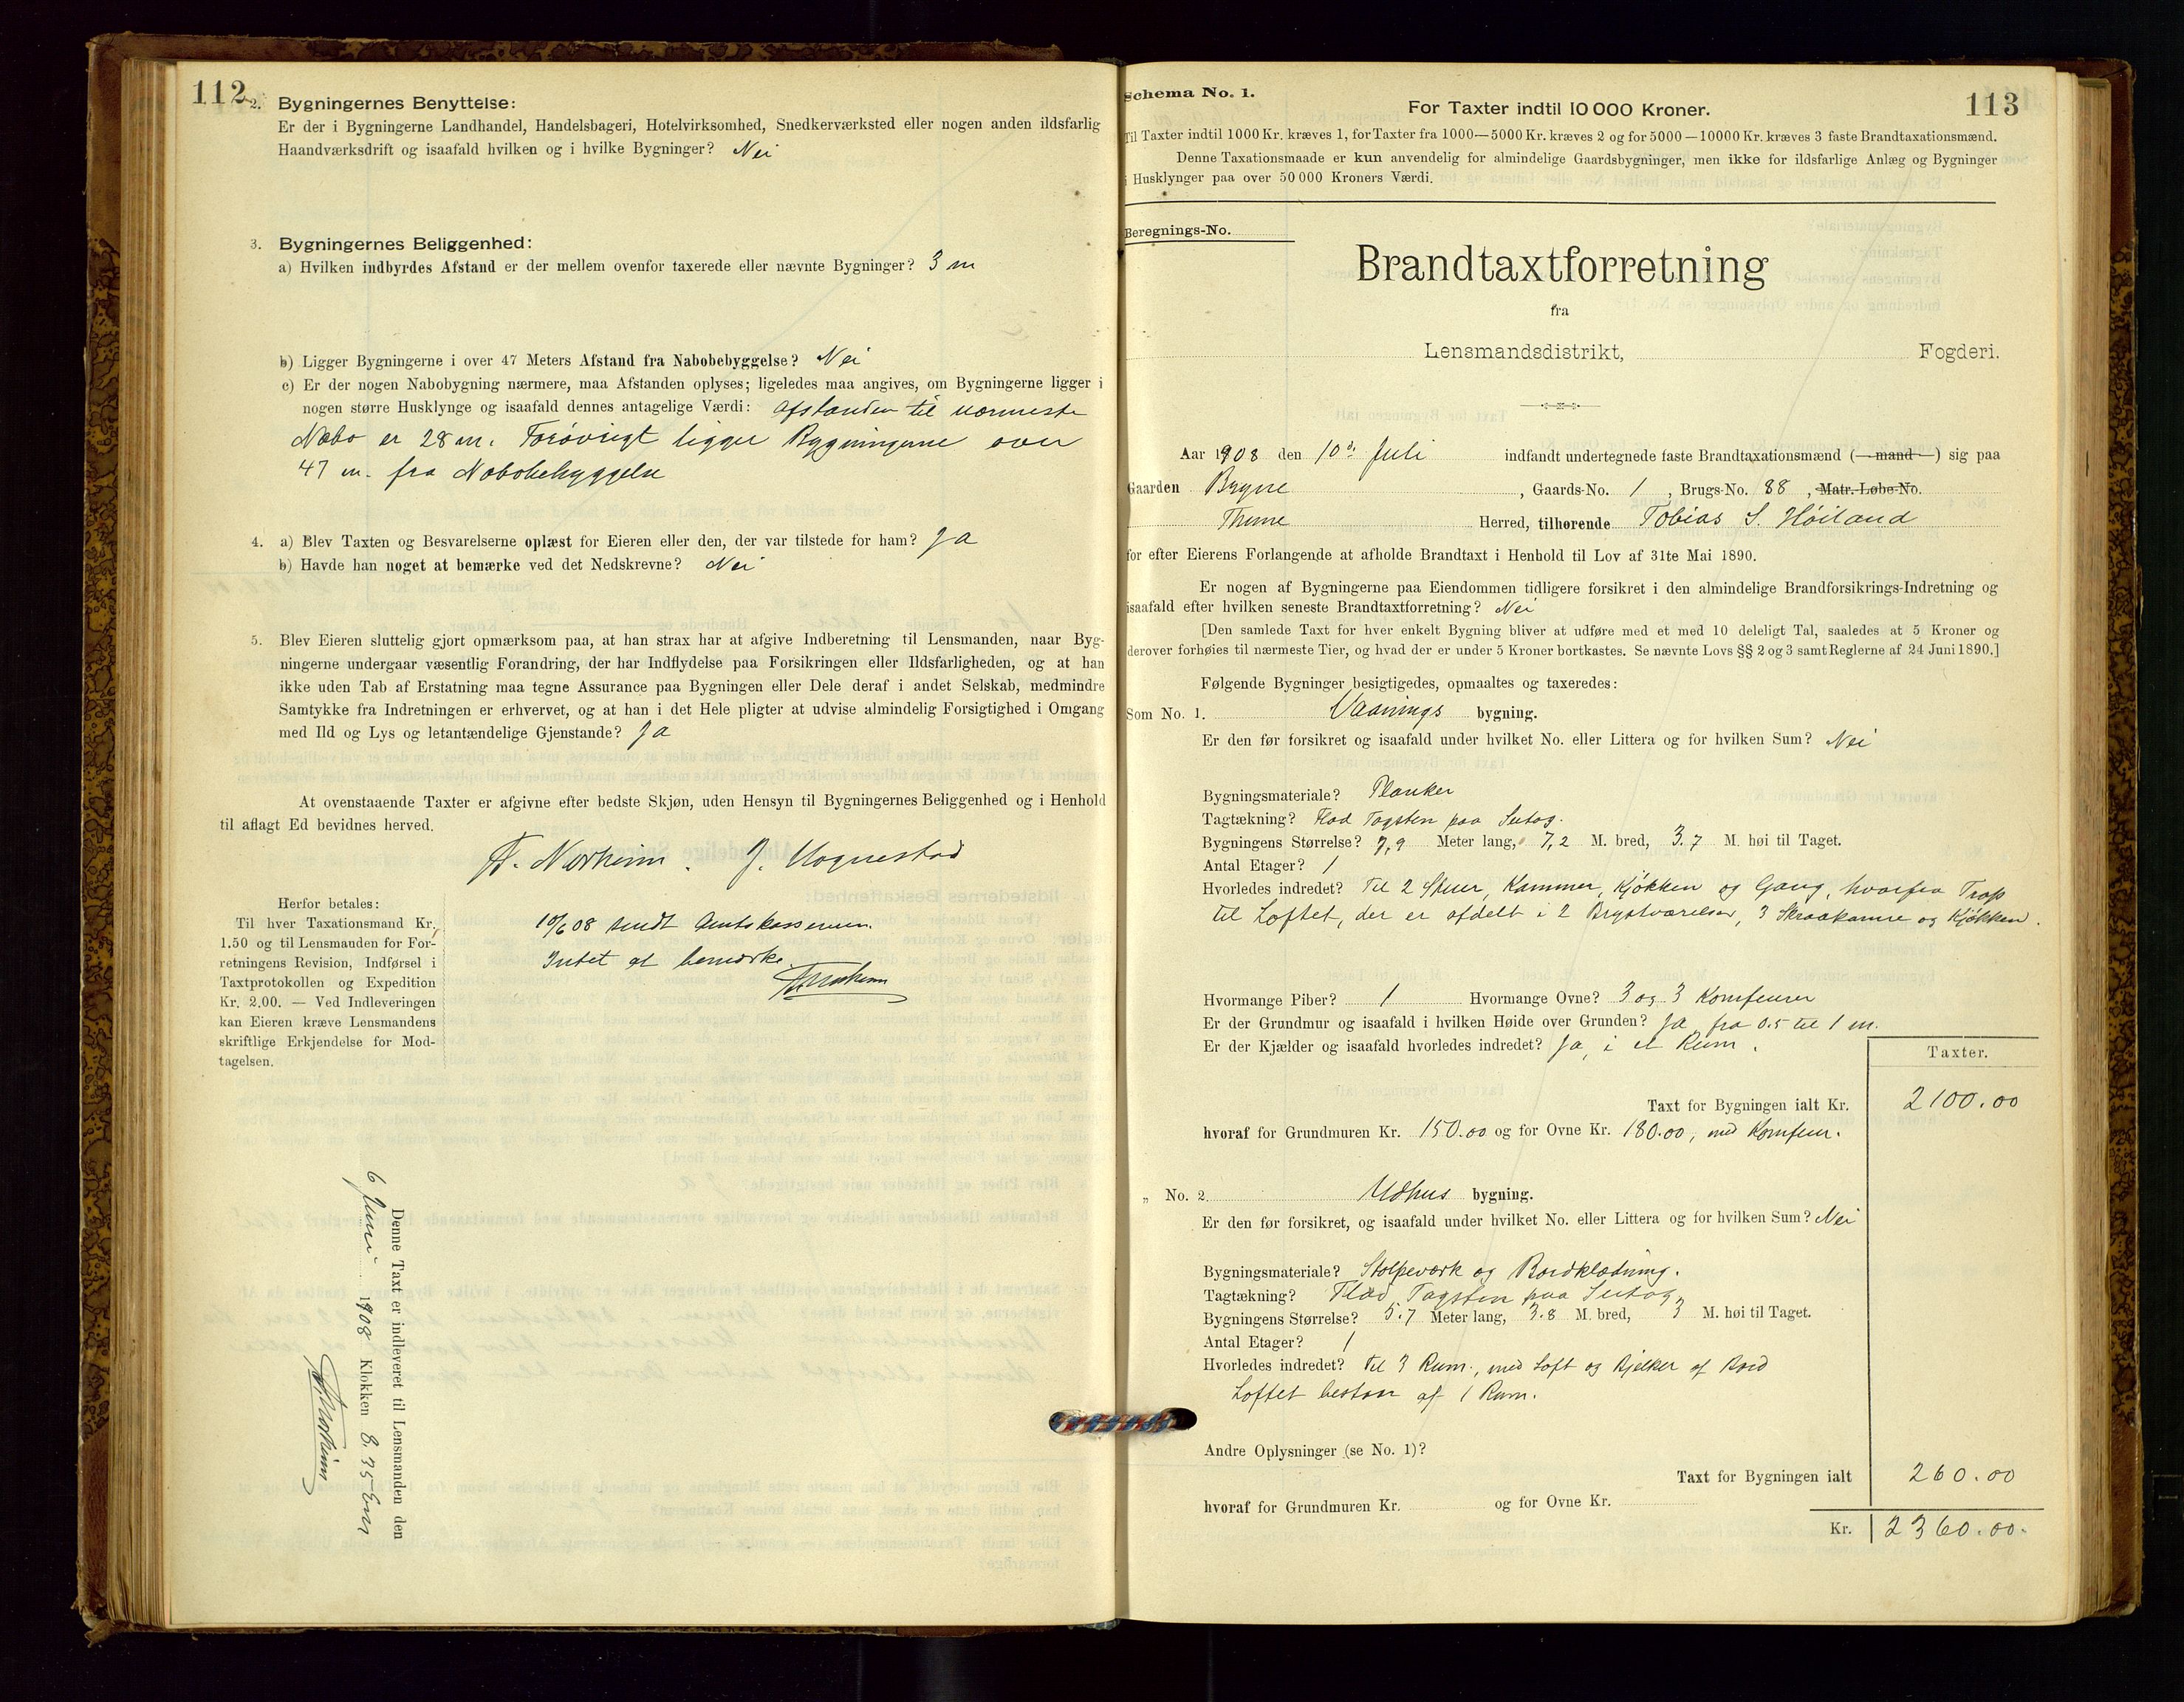 112
2. Bygningernes Benyttelse:
Er der i Bygningerne Landhandel, Handelsbageri, Hotelvirksomhed, Snedkerværksted eller nogen anden ildsfarlig
Haandværksdrift og isaafald hvilken og i hvilke Bygninger? Nei
3. Bygningernes Beliggenhed:
a) Hvilken indbyrdes Afstand er der mellem ovenfor taxerede eller nævnte Bygninger? 3 m
b) Ligger Bygningerne i over 47 Meters Afstand fra Nabobebyggelse? Nei
c) Er der nogen Nabobygning nærmere, maa Afstanden oplyses; ligeledes maa angives, om Bygningerne ligger i
nogen større Husklynge og isaafald dennes antagelige Værdi: Afstanden til nærmeste
Nabo er 28 m. Forøvrigt ligger Bygningerne over
47 m. fra Nabobebyggelse
4. a) Blev Taxten og Besvarelserne oplæst for Eieren eller den, der var tilstede for ham? Ja
b) Havde han noget at bemærke ved det Nedskrevne? Nei
5. Blev Eieren sluttelig gjort opmærksom paa, at han strax har at afgive Indberetning til Lensmanden, naar Byg-
ningerne undergaar væsentlig Forandring, der har Indflydelse paa Forsikringen eller Ildsfarligheden, og at han
ikke uden Tab af Erstatning maa tegne Assurance paa Bygningen eller Dele deraf i andet Selskab, medmindre
Samtykke fra Indretningen er erhvervet, og at han i det Hele pligter at udvise almindelig Forsigtighed i Omgang
med Ild og Lys og letantændelige Gjenstande? Ja
At ovenstaaende Taxter er afgivne efter bedste Skjøn, uden Hensyn til Bygningernes Beliggenhed og i Henhold
til aflagt Ed bevidnes herved.
Nærheim. J. Hognestad
Herfor betales:
Til hver Taxationsmand Kr.
1.50 og til Lensmanden for For-
retningens Revision, Indførsel i
Taxtprotokollen og Expedition
Kr. 2.00. — Ved Indleveringen
kan Eieren kræve Lensmandens
skriftlige Erkjendelse for Mod-
tagelsen.
10/6 08 sendt Amtskassereren.
Intet at bemærke.
Nærheim
Denne Taxt er indleveret til Lensmanden den
6 Juni 1908 Klokken 8.35 Em
Nærheim
113
Schema No. 1.
For Taxter indtil 10 000 Kroner.
Til Taxter indtil 1000 Kr. kræves 1, for Taxter fra 1000—5000 Kr. kræves 2 og for 5000—10000 Kr. kræves 3 faste Brandtaxationsmænd.
Denne Taxationsmaade er kun anvendelig for almindelige Gaardsbygninger, men ikke for ildsfarlige Anlæg og Bygninger
i Husklynger paa over 50 000 Kroners Værdi.
Beregnings-No.
Brandtaxtforretning
fra
Lensmandsdistrikt, Fogderi.
Aar 1908 den 10de Juli indfandt undertegnede faste Brandtaxationsmænd (—mand—) sig paa
Gaarden Bryne, Gaards-No. 1, Brugs-No. 88, Matr.-Løbe-No.
Thime Herred, tilhørende Tobias S. Høiland
for efter Eierens Forlangende at afholde Brandtaxt i Henhold til Lov af 31te Mai 1890.
Er nogen af Bygningerne paa Eiendommen tidligere forsikret i den almindelige Brandforsikrings-Indretning og
isaafald efter hvilken seneste Brandtaxtforretning? Nei
[Den samlede Taxt for hver enkelt Bygning bliver at udføre med et med 10 deleligt Tal, saaledes at 5 Kroner og
derover forhøies til nærmeste Tier, og hvad der er under 5 Kroner bortkastes. Se nævnte Lovs §§ 2 og 3 samt Reglerne af 24 Juni 1890.]
Følgende Bygninger besigtigedes, opmaaltes og taxeredes:
Som No. 1. Vaanings bygning.
Er den før forsikret og isaafald under hvilket No. eller Littera og for hvilken Sum? Nei
Bygningsmateriale? Planker
Tagtækning? Flad Tagsten paa Sutag.
Bygningens Størrelse? 7,9 Meter lang, 7,2 M. bred, 3.7 M. høi til Taget.
Antal Etager? 1
Hvorledes indredet? Til 2 Stuer, Kammer, Kjøkken og Gang, hvorfra Trap
til Loftet, der er afdelt i 2 Brystværelser, 3 Skraakamre og Kjøkken.
Hvormange Piber? 1 Hvormange Ovne? 3 og 3 Komfeurer
Er der Grundmur og isaafald i hvilken Høide over Grunden? Ja, fra 0.5 til 1 m.
Er der Kjælder og isaafald hvorledes indredet? Ja, i et Rum.
Taxter.
Taxt for Bygningen ialt Kr. 2100.00
hvoraf for Grundmuren Kr. 150.00 og for Ovne Kr. 180.00, med Komfeur.
„ No. 2. Udhus bygning.
Er den før forsikret, og isaafald under hvilket No. eller Littera og for hvilken Sum? Nei
Bygningsmateriale? Stolpeværk og Bordklædning.
Tagtækning? Flad Tagsten paa Sutag
Bygningens Størrelse? 5.7 Meter lang, 3.8 M. bred, 3 M. høi til Taget.
Antal Etager? 1
Hvorledes indredet? Til 3 Rum, med Loft og Bjelker af Bord
Loftet bestaar af 1 Rum.
Andre Oplysninger (se No. 1)?
Taxt for Bygningen ialt 260.00
hvoraf for Grundmuren Kr. og for Ovne Kr.
Kr. 2360.00.